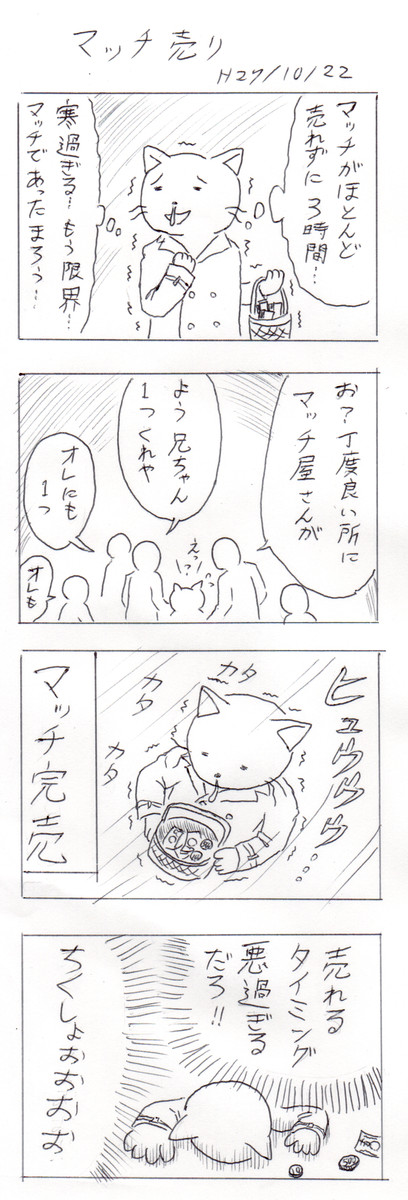 マッチ売り
H27/10/22
マッチがほとんど
売れずに3時間…
寒過ぎる…もう限界…
マッチであったまろう…
お?丁度良い所に
マッチ屋さんが
よう兄ちゃん
1つくれや
えっ!?
オレにも
1つ
オレも
ヒュウウウウ…
カタ
カタ
カタ
マッチ完売
売れる
タイミング
悪過ぎる
だろ!!
ちくしょおおおお